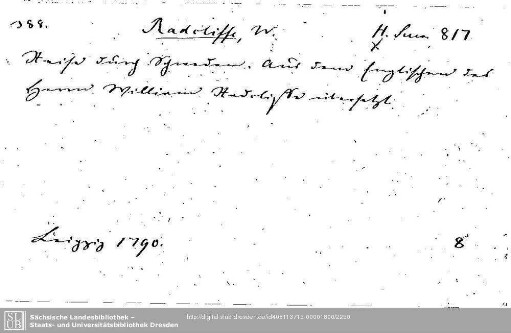 388. Radcliffe, W. H. Suec. 817
Reise durch Schweden. Aus dem Englischen des
Herrn William Radcliffe übersetzt
Leipzig 1790. 8°
Sächsische Landesbibliothek –
Staats- und Universitätsbibliothek Dresden